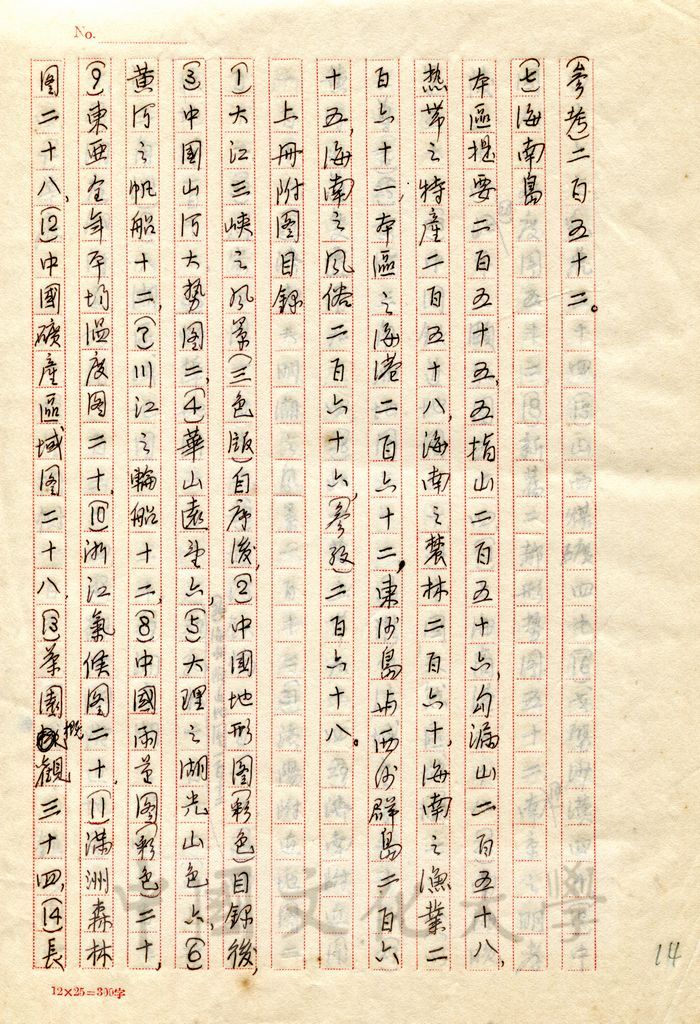 No.
(參考)二百五十二。
(七)海南島
本區提要二百五十五,五指山二百五十六,勾漏山二百五十八,
熱帶之特產二百五十八,海南之農林二百六十,海南之漁業二
百六十一,本區之海港二百六十二,東沙島与西沙群島二百六
十五,海南之風俗二百六十六,(參攷)二百六十八。
上册附图目録
(1)大江三峽之風景(三色版)自序後,(2)中国地形图(彩色)目録後,
(3)中國山河大勢图二,(4)華山遠望六,(5)大理之湖光山色六,(6)
黄河之帆船十二,(7)川江之輪船十二,(8)中國雨量图(彩色)二十,
(9)東亜全年平均温度图二十,(10)浙江氣候图二十,(11)滿洲森林
图二十八,(12)中國礦產區域图二十八,(13)茶園概觀三十四,(14)長
12×25=300字
14
中國文化大學